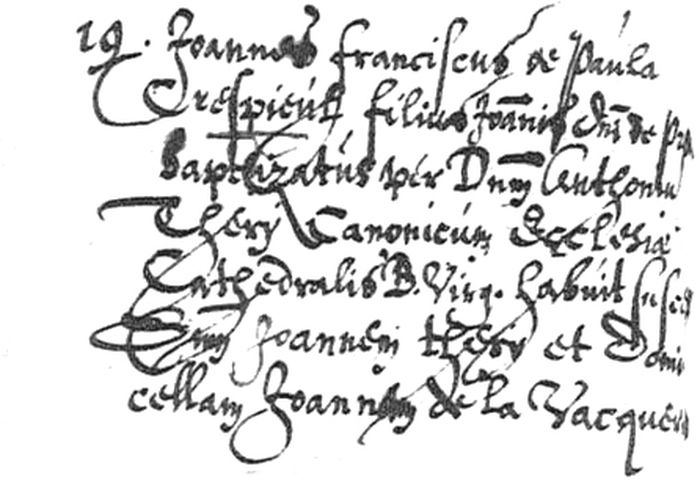 19. Joannes franciscus de paula
Crespieul filius Joānis dni de
baptizatus per Dnm Anthoniu
Thery Canonicum Ecclesiæ
Cathedralis B. Virg. habuit
Dnm Joannem thery et Domi
cellam Joannam de la Vacquer